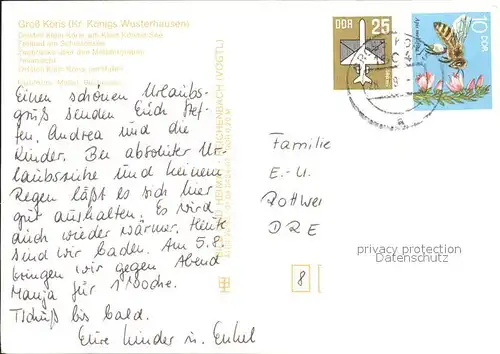 Groß Köris (Kr. Königs Wusterhausen)
Ortsteil Klein Köris am Klein Köriser See
Einen schönen Urlaubs-
gruß senden Euch Stef-
fen, Andrea und die
Kinder. Bei absoluter Ur-
laubsruhe und keinem
Regen läßt es sich hier
gut aushalten. Es wird
auch wieder wärmer. Heute
sind wir baden. Am 5.8.
bringen wir gegen Abend
Manja für 1 Woche.
Tschüß bis bald.
Eure Kinder u. Enkel
REICHENBACH (VOGTL)
DDR 25
10 DDR
Familie
E.-U.
Rottwei
DRE
8
privacy protection
Datenschutz